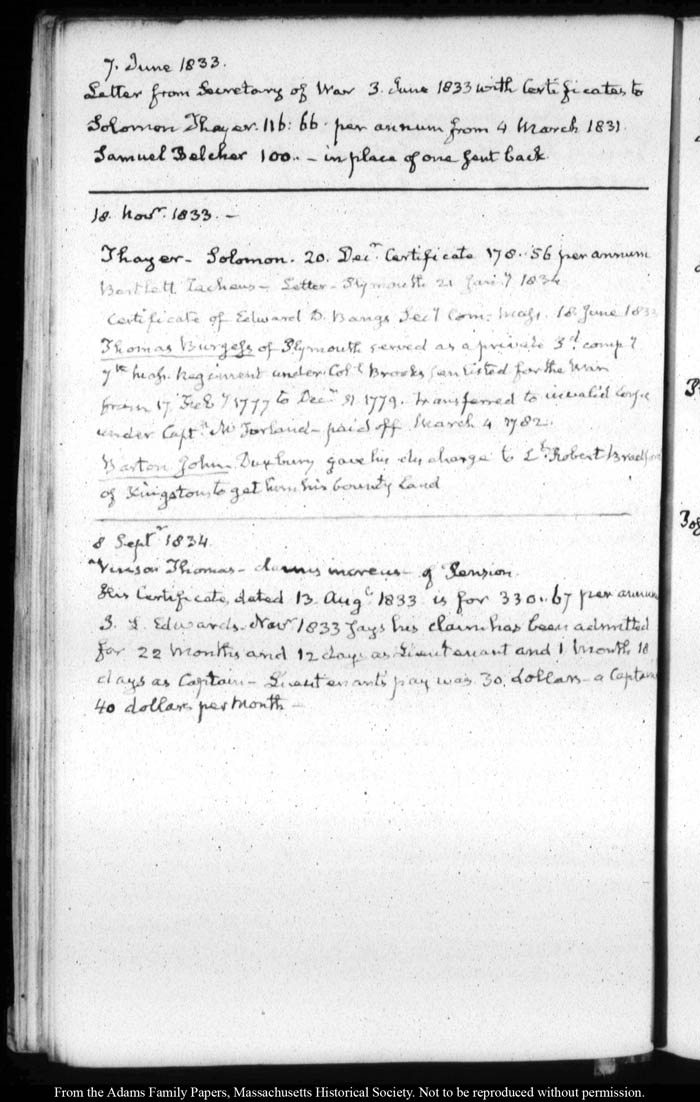 7. June 1833.
Letter from Secretary of War 3. June 1833 with Certificates to
Solomon Thayer. 116: 66. per annum from 4 March 1831.
Samuel Belcher 100.. – in place of one sent back.
18. Novr. 1833. –
Thayer – Solomon. 20. Decr. Certificate 178.. 56 per annum
Bartlett Zacheus – Letter – Plymouth 21 Jan.y 1834
Certificate of Edward D. Bangs Secy Com: Mass. 18. June 1833
Thomas Burgess of Plymouth served as a private 3d. compy
7th Mass. Regiment under Coll. Brooks enlisted for the War
from 17 Feby 1777 to Decr 31 1779. transferred to invalid Corps
under Captn. McFarland – paid off March 4 1782.
Barton John – Duxbury gave his discharge to Lt. Robert Bradford
of Kingston to get him his bounty land
8 Septr 1834.
Vinson Thomas – claims increase of Pension.
His Certificate, dated 13. Augt 1833 is for 330..67 per annum
J. L. Edwards. Novr 1833 says his claim has been admitted
for 22 Months and 12 days as Lieutenant and 1 Month 18
days as Captain – Lieutenants pay was 30. dollars – a Captains
40 dollars per Month –
From the Adams Family Papers, Massachusetts Historical Society. Not to be reproduced without permission.